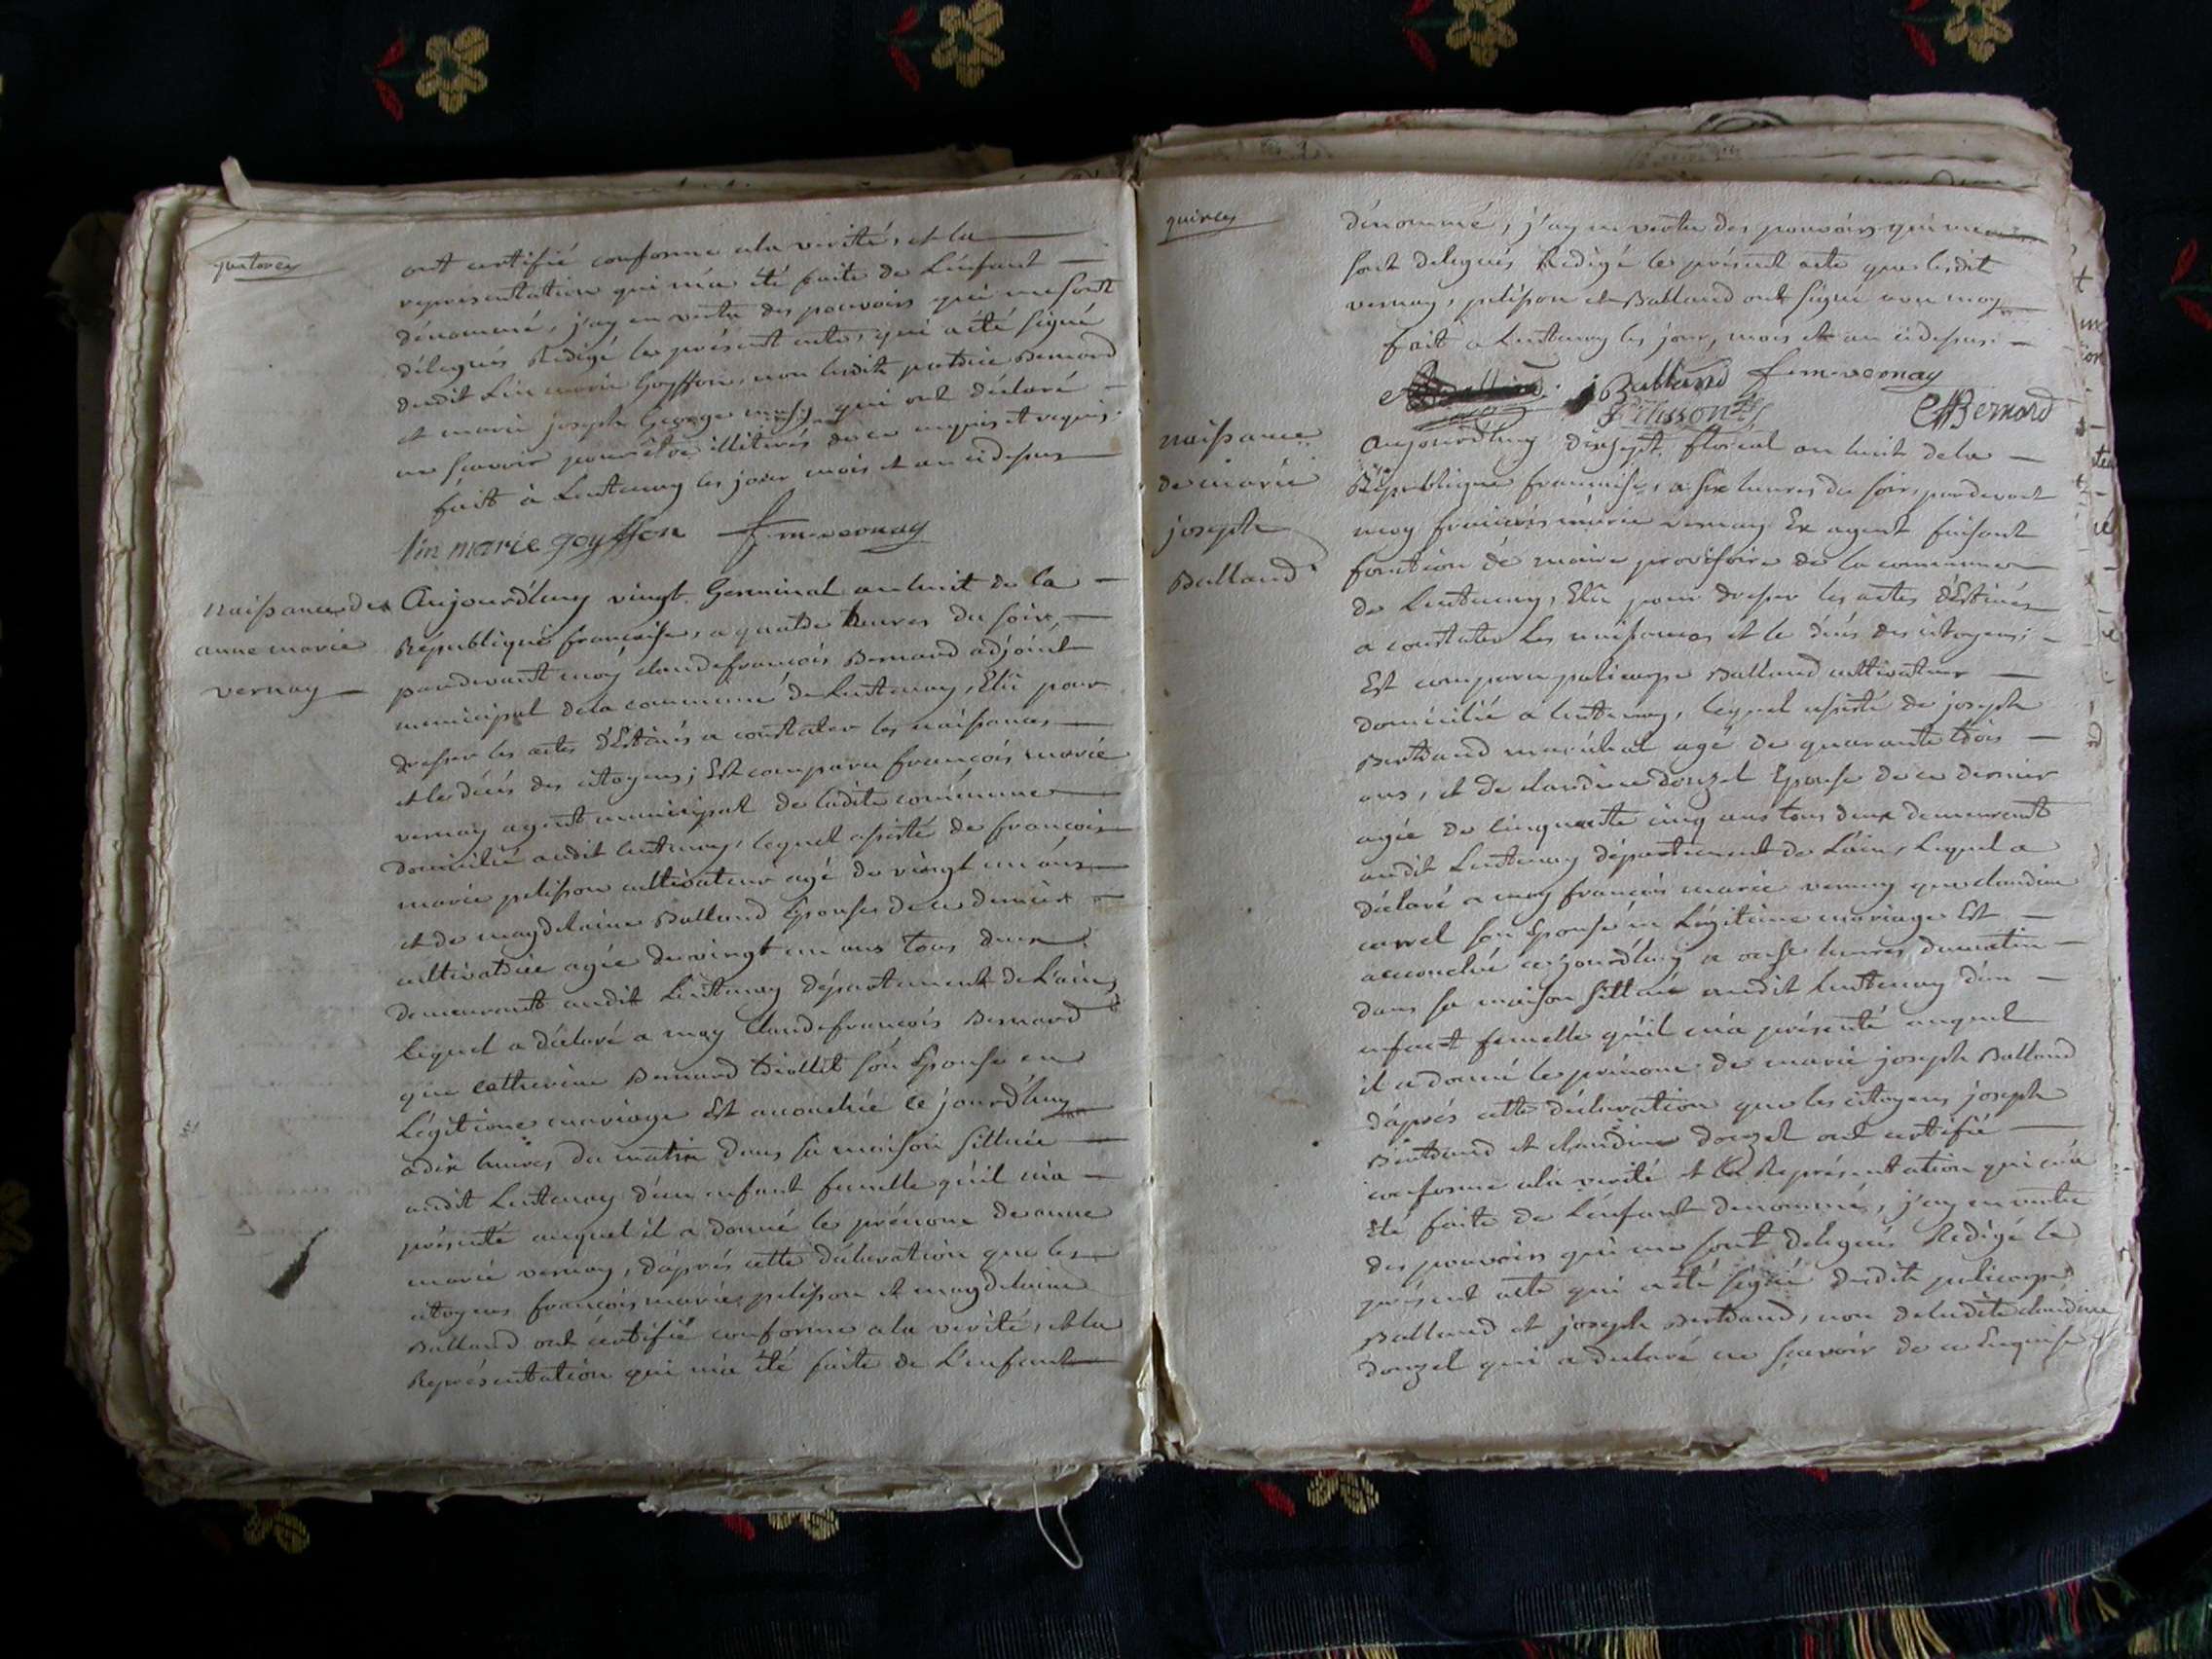 quatorze
ont certifié conforme ala verité, et la
representation qui m'a été faite de L'enfant
dénommé, j'ay en vertu des pouvoirs qui me sont
délegués Redigé le présent acte, qui a été signé
dudit Lin marie Goyffon, non lesdits Bernard
et marie joseph George qui ont déclaré
ne scavoir pour être illiterés de ce enquis et requis.
fait à Lentenay les jour mois et an cidessus
lin marie goyffon f.m. vernay
Naissance de
anne marie
vernay
Aujourd'huy vingt Germinal an huit de la
République française, a quatre heures du soir,
pardevant moy claude françois Bernard adjoint
municipal dela commune de Lentenay, Elû pour
dresser les actes d'Estinés a constater les naissances
et les décés des citoyens; Est comparu françois marie
vernay agent municipal de ladite commune
domicilié audit lentenay, lequel assisté de françois
marie pelisson cultivateur agé de vingt un ans
et de magdelaine Balland Epouse de ce dernier
cultivatrice agée de vingt un ans tous deux
demeurants audit Lentenay département de L'ain,
lequel a déclaré a moy Claude françois Bernard
que catherine Bernard son Epouse en
Légitime mariage Est accouchée ce jourd'huy
a dix heures du matin dans sa maison sittuée
audit Lentenay d'un enfant femelle qu'il m'a
présenté auquel il a donné le prénom de anne
marie vernay, d'aprés cette déclaration que les
citoyens françois marie pelisson et magdelaine
Balland ont certifié conforme a la verité, et la
Représentation qui m'a été faite de L'enfant
quinze
dénommé, j'ay en vertu des pouvoirs qui me
sont delegués Redigé le présent acte que lesdit
vernay, pelisson et Balland ont signé avec moy
fait a Lentenay les jour, mois et an cidessus.
Balland f.m. vernay
Pelisson Bernard
naissance
de marie
joseph
Balland
Aujourd'huy dixsept floreal an huit dela
République française, a six heures du soir, pardevant
moy françois marie vernay Ex agent faisant
fonction de maire provisoire de la commune
de Lentenay, Elû pour dresser les actes d'Estinés
a constater les naissances et le décés des citoyens;
Est comparu policarpe Balland cultivateur
domicilié a lentenay, lequel assisté de joseph
Bertrand maréchal agé de quarante trois
ans, et de claudine douzel Epouse de ce dernier
agée de cinquante cinq ans tous deux demeurants
audit Lentenay département de L'ain, Lequel a
déclaré a moy françois marie vernay que claudine
son Epouse en Légitime mariage Est
accouchée ce jourd'huy a onze heures du matin
dans sa maison sittuée audit lentenay d'un
enfant femelle qu'il m'a présenté auquel
il a donné le prénom de marie joseph Balland
d'aprés cette déclaration que les citoyens joseph
Bertrand et claudine douzel ont certifié
conforme ala verité et la Représentation qui m'a
Eté faite de L'enfant denommé, j'ay en vertu
des pouvoirs qui me sont delegués Redigé le
présent acte qui a été signé dudit policarpe
Balland et joseph Bertrand, non deladite claudine
douzel qui a declaré ne scavoir de ce Enquise